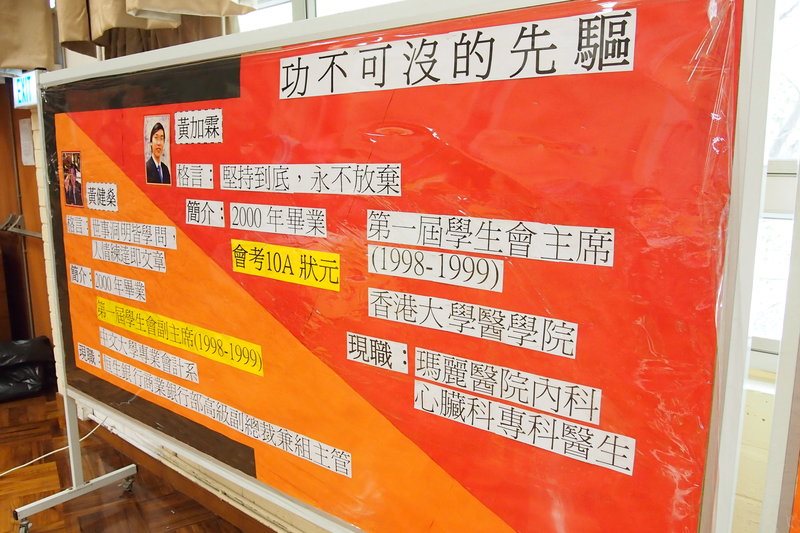 EXIT
功不可沒的先驅
黃加霖
格言：堅持到底，永不放棄
簡介：2000年畢業
會考10A 狀元
第一屆學生會主席
(1998-1999)
香港大學醫學院
現職：瑪麗醫院內科
心臟科專科醫生
黃健燊
格言：世事洞明皆學問，
人情練達即文章
簡介：2000年畢業
第一屆學生會副主席(1998-1999)
中文大學專業會計系
現職：恒生銀行商業銀行部高級副總裁兼組主管